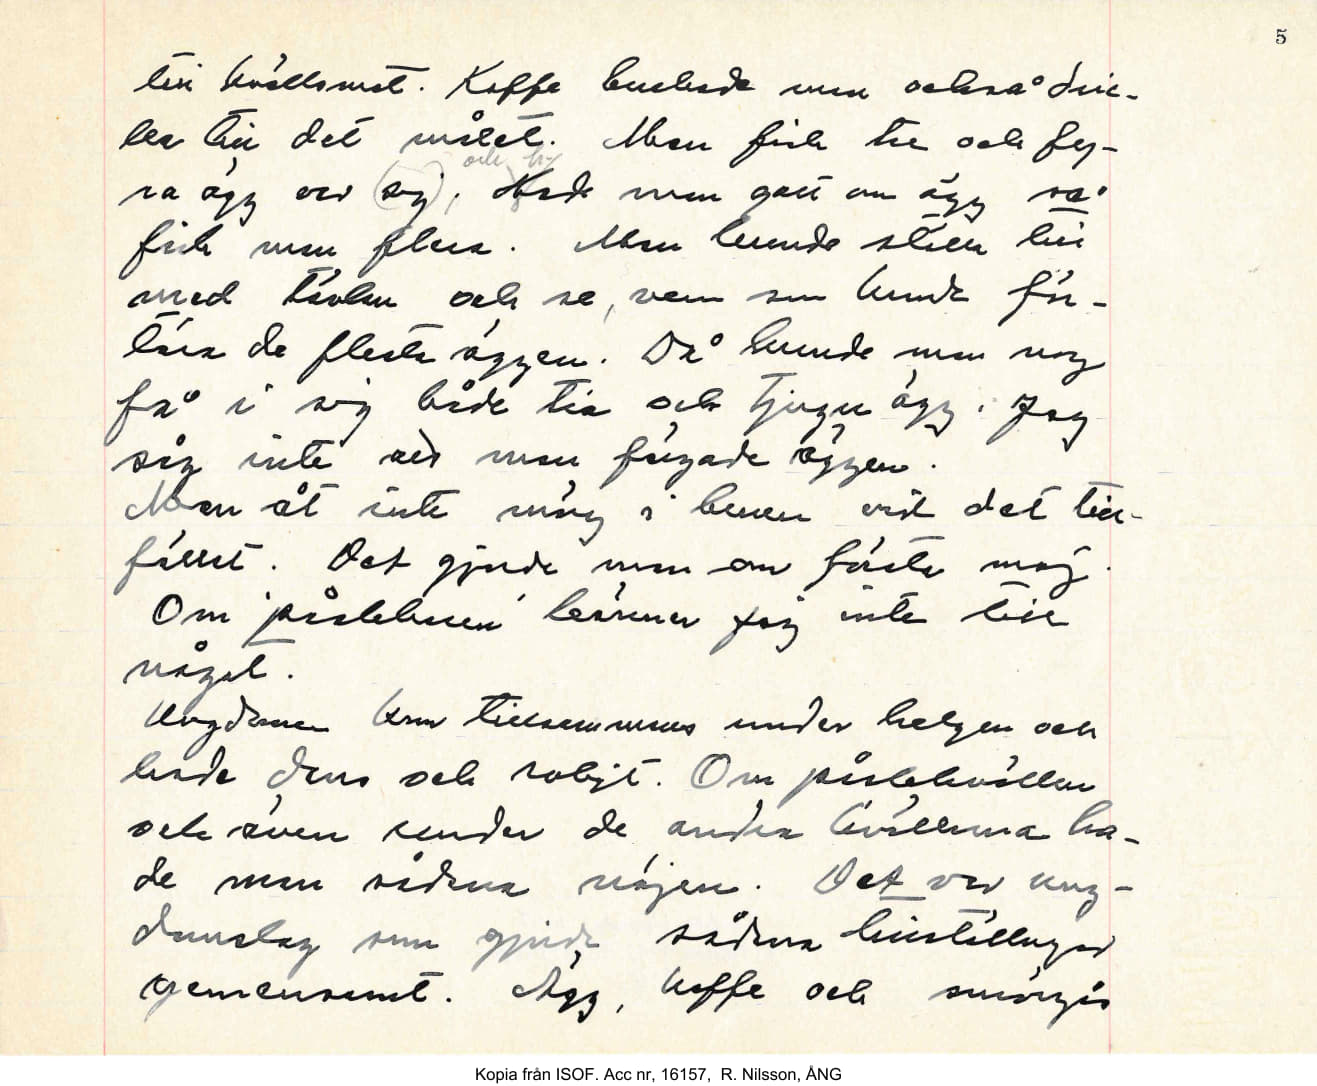 5
till kvällsmat. Kaffe brukade man också dric-
ka till det målet. Man fick tre och fy-
och
ra ägg var sig, Hade man gott om ägg så
fick man flera. Man kunde ställa till
med tävlan och se, vem som kunde för-
tära de flesta äggen. Då kunde man nog
få i sig både tio och tjugu ägg. Jag
såg inte att man färgade äggen.
Man åt inte märg i benen vid det till-
fället. Det gjorde man om första maj.
Om 'påskbusen' känner jag inte till
något.
Ungdomen kom tillsammans under helgen och
hade dans och roligt. Om påskkvällen
och även under de andra kvällarna ha-
de man sådana nöjen. Det var ung-
domslag som gjorde sådana tillställningar
gemensamt. Ägg, kaffe och smörgås
Kopia från ISOF. Acc nr, 16157, R. Nilsson, ÅNG